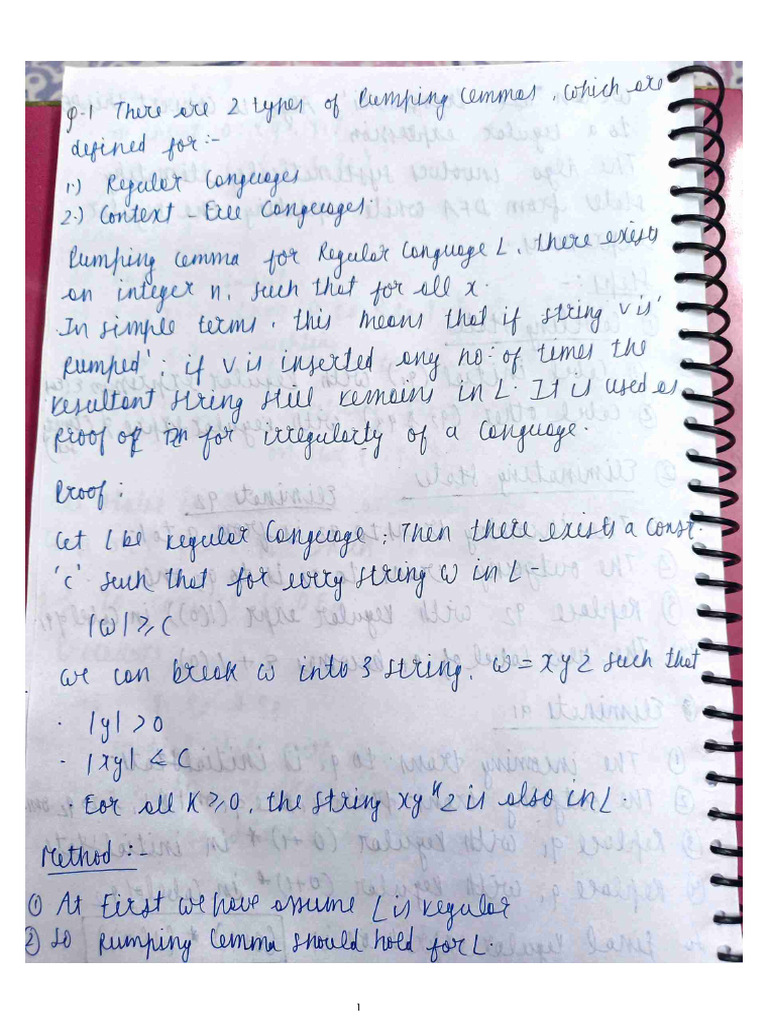 Q-1 There are 2 types of Pumping Lemmas, which are
defined for:-
1.) Regular Languages
2.) Context - Free Languages.
Pumping Lemma for Regular Language L, there exists
an integer n, such that for all x.
In simple terms, this means that if string v is
'Pumped'; if v is inserted any no: of times the
resultant string still remains in L. It is used as
Proof of for irregularty of a Language.
Proof:
Let L be regular Language; Then there exists a const.
'c' such that for every string w in L-
|w| ≥ c
we can break w into 3 string, w = xyz such that
. |y| > 0
. |xy| ≤ c
. For all K ≥ 0, the string xy^K z is also in L.
Method:-
① At First we have assume L is regular
② So Pumping Lemma should hold for L.
1